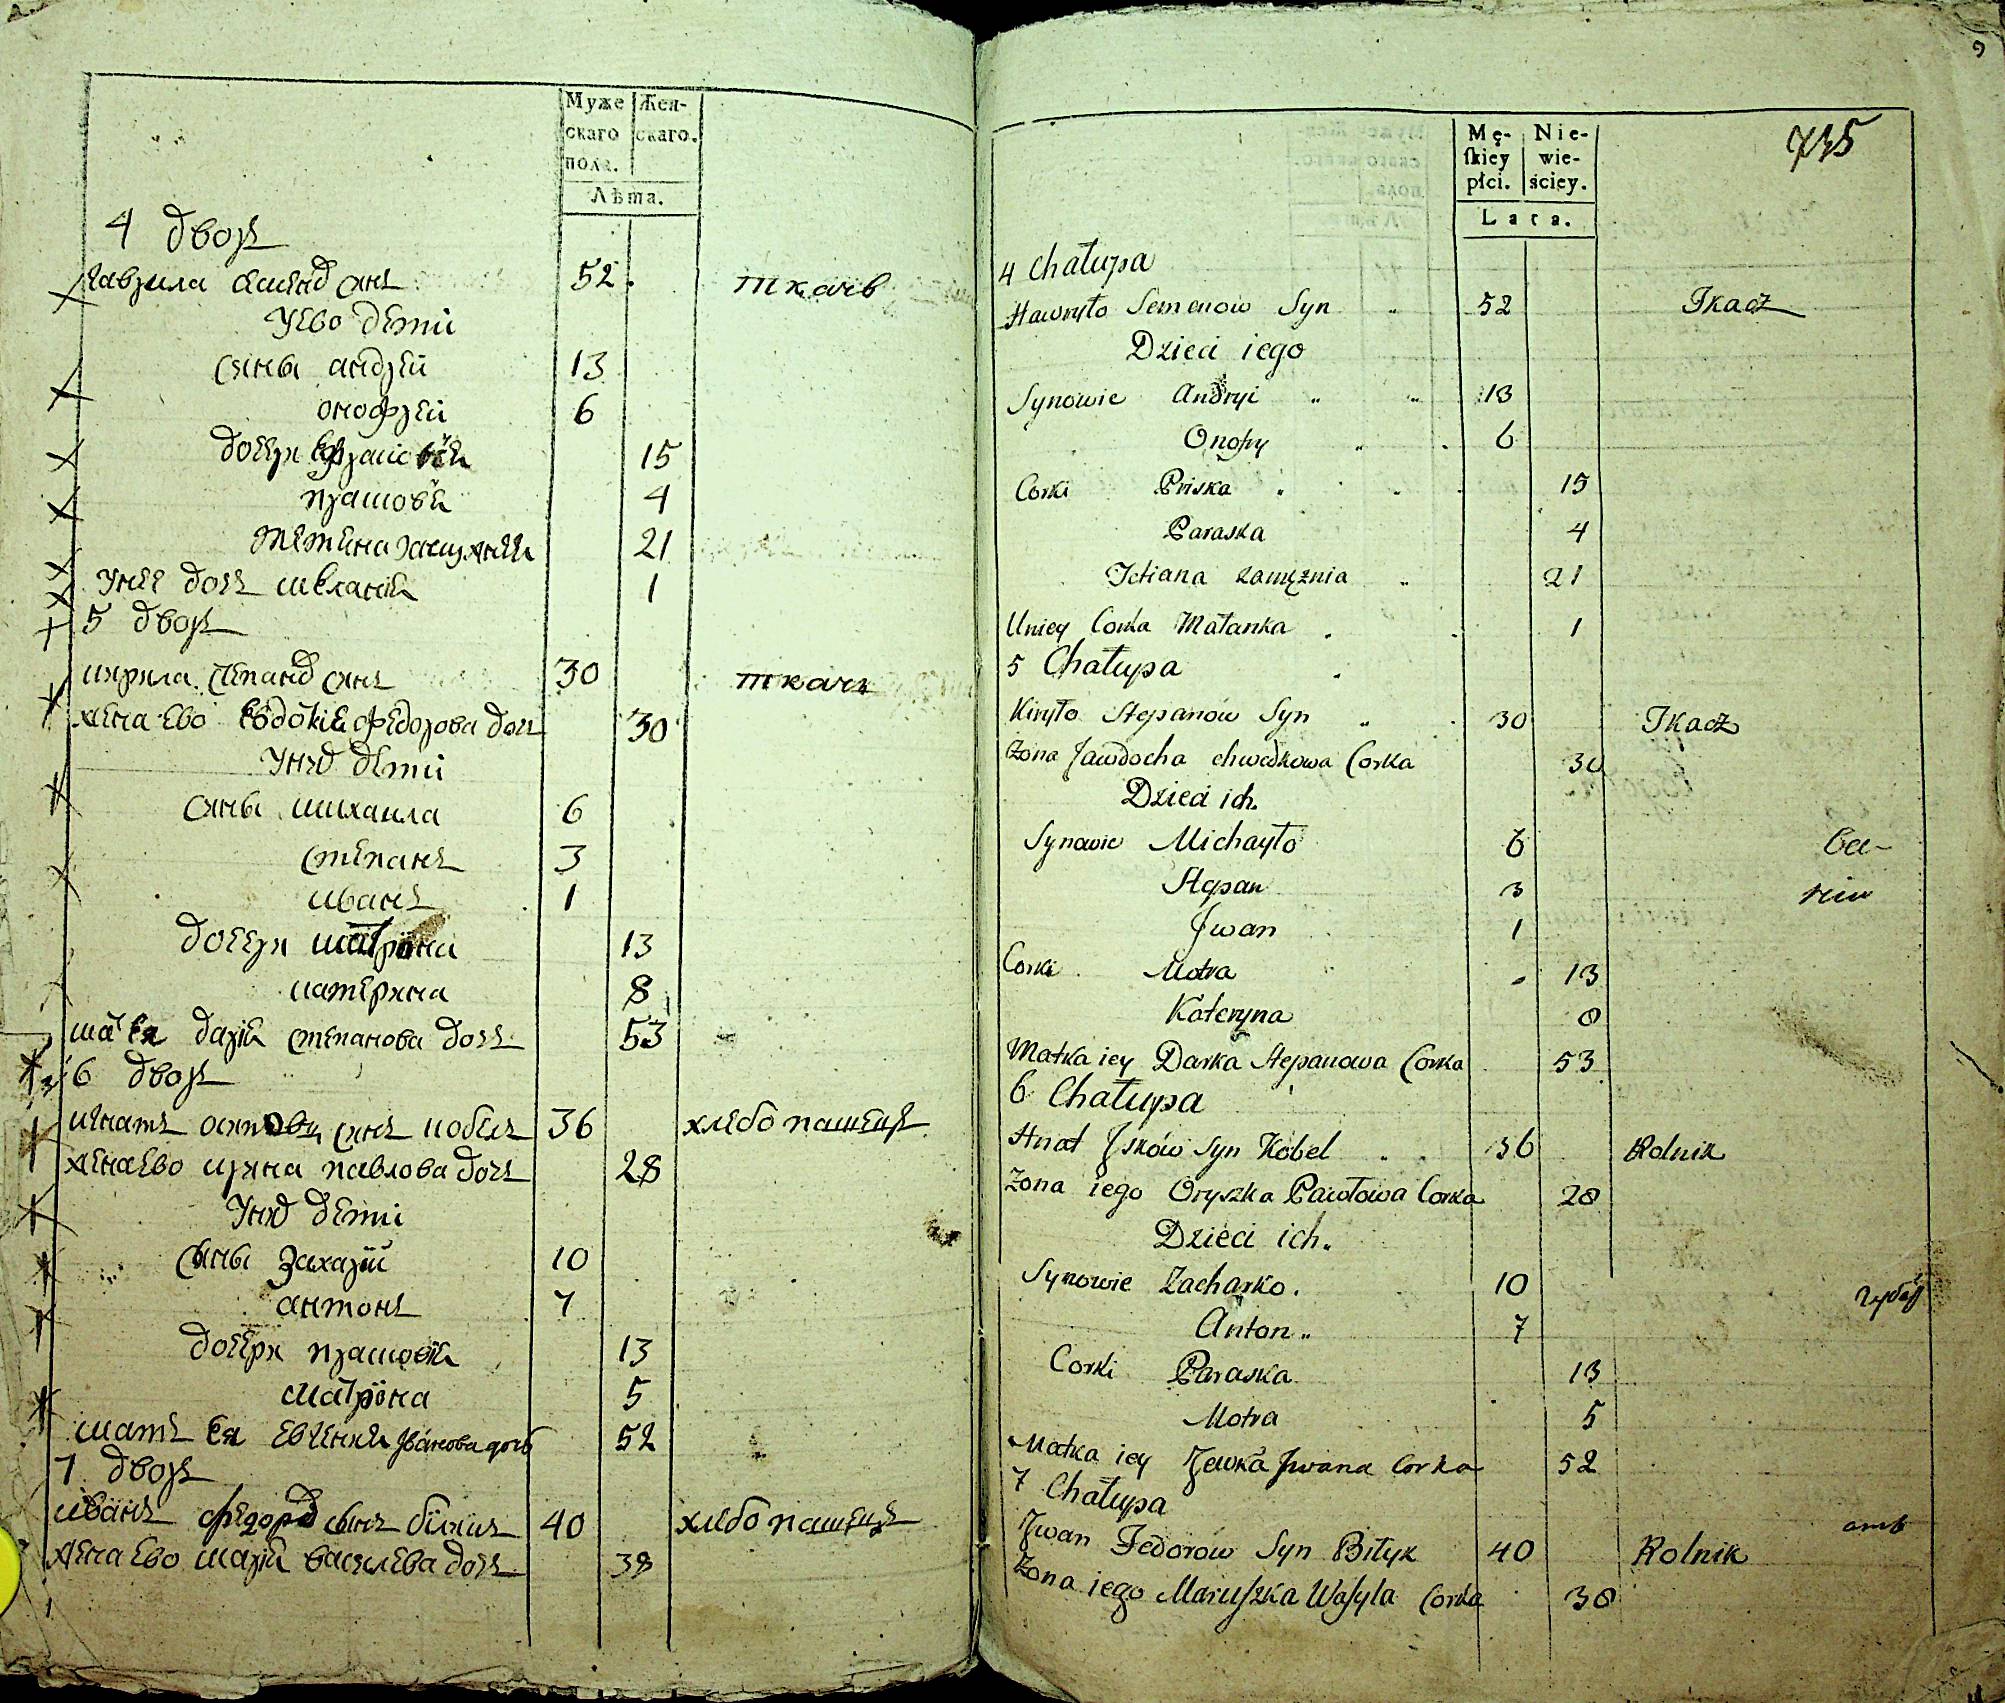 Муже Жен-
скаго скаго.
пола.
Лѣта.
4 дворъ
гаврила семенов сянъ 52. ткачь
у ево дети
сяны андрей 13
онофрей 6
дочеря 15
прасковея 4
тетяна замужняя 21
у нее дочь меланея 1
5 дворъ
кирила степанов сянъ 30 ткачъ
жена ево евдокия федорова дочь 30
у них дети
сяны михаила 6
степанъ 3
иванъ 1
дочеря матрона 13
катерина 8
мать ея дария степанова дочь 53
6 дворъ
игнатъ сянъ кобелъ 36 хлебопашецъ
жена ево ирина павлова дочь 28
у них дети
сыны захарий 10
антонъ 7
дочеря прасковея 13
матрона 5
мать ея евгения іванова дочь 52
7 дворъ
иванъ федоров сынъ билык 40 хлебопашецъ
жена ево мария василева дочь 38
9
735
Mę- Nie-
ſkiey wie-
płci. ściey.
Lata.
4 Chałupa
Hawryło Semenow Syn 52 Tkacz
Dzieci iego
Synowie Andryi 13
Onopry 6
Corki Priska 15
Paraska 4
Tetiana zamężnia 21
Uniey Corka Małanka 1
5 Chałupa
Kiryło Stepanów Syn 30 Tkacz
Żona Jawdocha chwedkowa Corka 30
Dzieci ich.
Synowie Michayło 6
Stepan 3
Jwan 1
Corki Motra 13
Kateryna 8
Matka iey Darka Stepanowa Corka 53
6 Chałupa
Hnat Jsków Syn Kobel 36 Rolnik
Żona iego Oryszka Pawłowa Corka 28
Dzieci ich.
Synowie Zacharko. 10
Anton 7
Corki Paraska 13
Motra 5
Matka iey Jewka Jwana Corka 52
7 Chałupa
Jwan Fedorów Syn Biłyk 40 Rolnik
Żona iego Maruszka Wasyla Corka 38